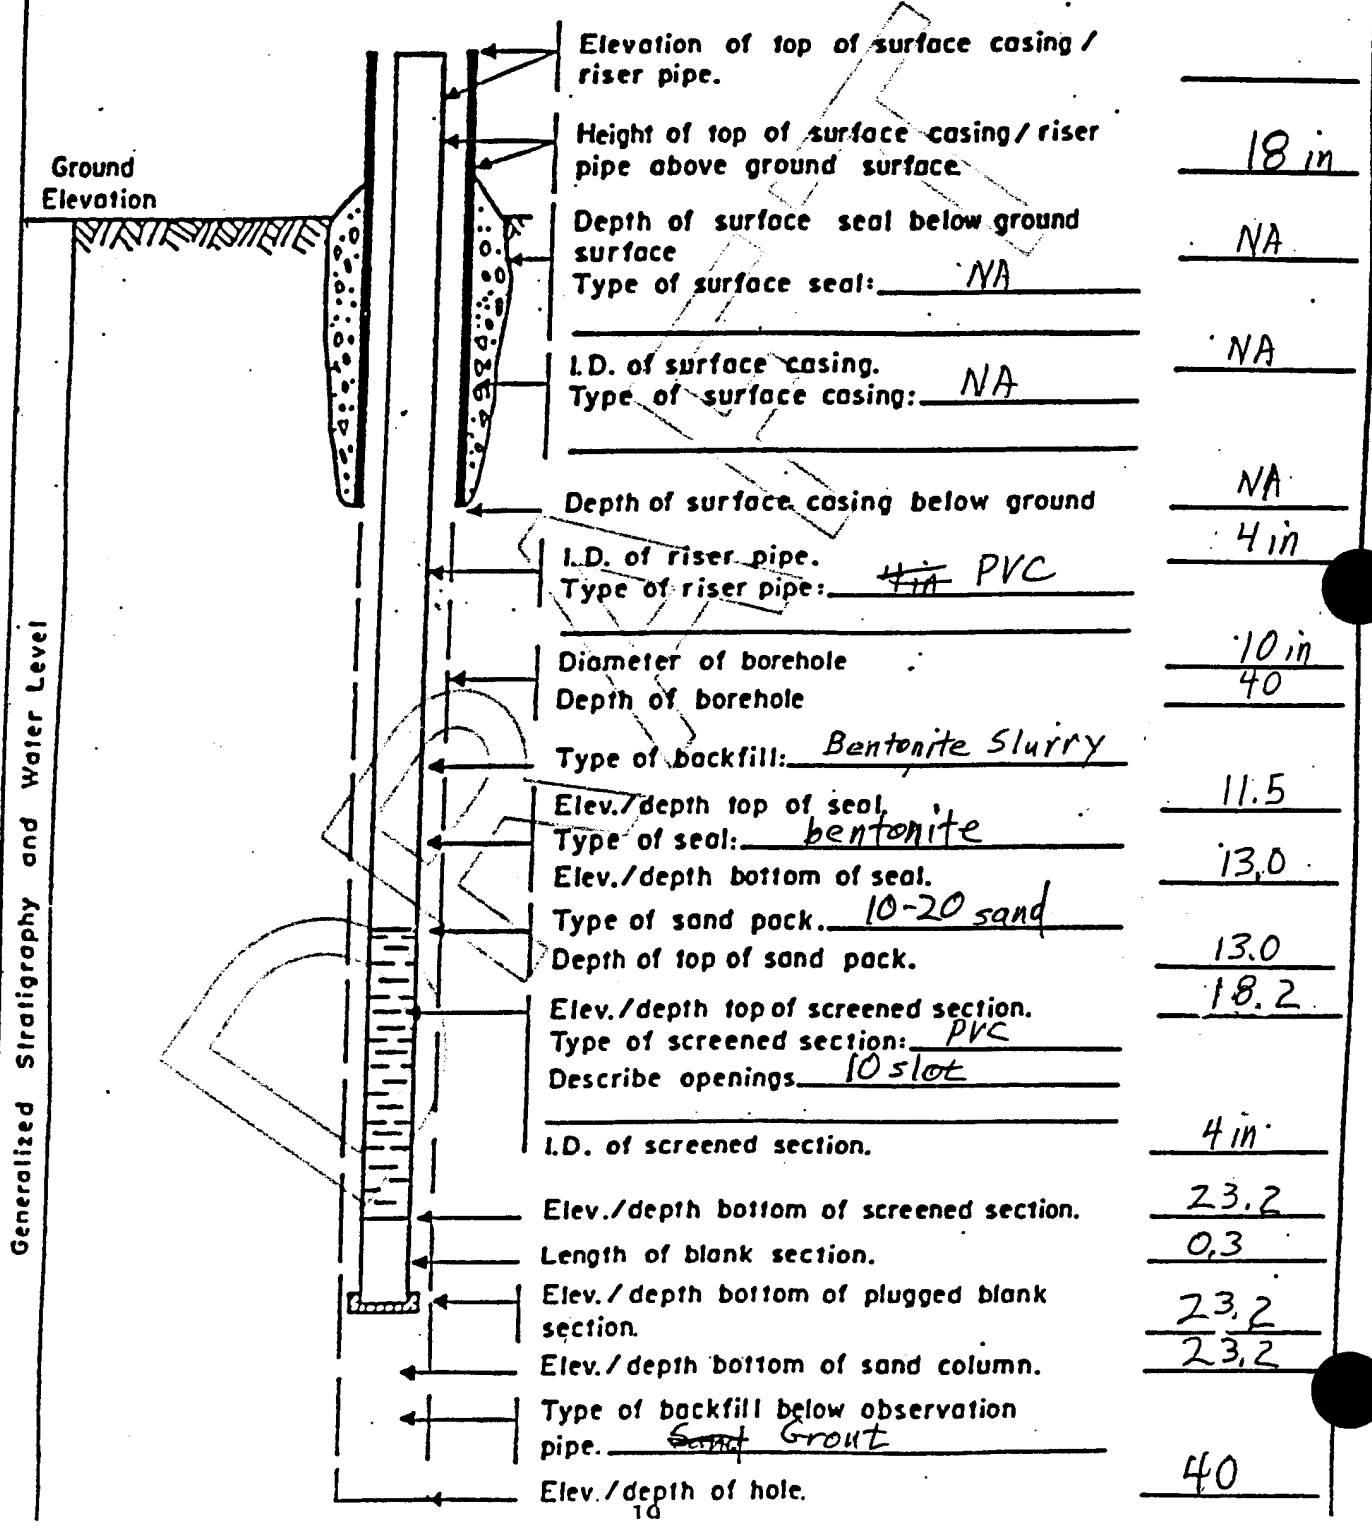 Elevation of top of surface casing /
riser pipe.
Height of top of surface casing / riser
pipe above ground surface. 18 in
Ground
Elevation
Depth of surface seal below ground
surface NA
Type of surface seal: NA
I.D. of surface casing. NA
Type of surface casing: NA
Depth of surface casing below ground NA
I.D. of riser pipe. 4 in
Type of riser pipe: 4 in PVC
Diameter of borehole 10 in
Depth of borehole 40
Type of backfill: Bentonite Slurry
Elev./depth top of seal. 11.5
Type of seal: bentonite
Elev./depth bottom of seal. 13.0
Type of sand pack. 10-20 sand
Depth of top of sand pack. 13.0
Elev./depth top of screened section. 18.2
Type of screened section: PVC
Describe openings. 10 slot
I.D. of screened section. 4 in
Elev./depth bottom of screened section. 23.2
Length of blank section. 0.3
Elev./depth bottom of plugged blank
section. 23.2
Elev./depth bottom of sand column. 23.2
Type of backfill below observation
pipe. Sand Grout
Elev./depth of hole. 40
19
Generalized Stratigraphy and Water Level
DRAFT